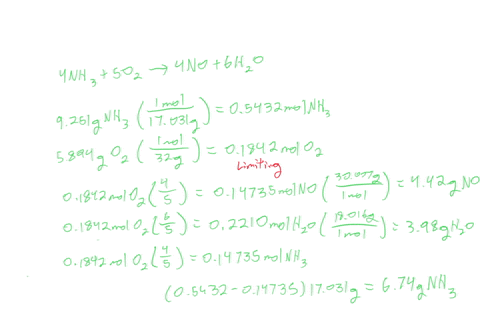 4NH3 + 5O2 → 4NO + 6H2O
9.251g NH3 (1mol/17.031g) = 0.5432molNH3
5.894g O2 (1mol/32g) = 0.1842molO2
Limiting
0.1842molO2(4/5) = 0.14735molNO(30.007g/1mol) = 4.42gNO
0.1842molO2(6/5) = 0.2210molH2O(18.016g/1mol) = 3.98gH2O
0.1842molO2(4/5) = 0.14735molNH3
(0.5432 - 0.14735) 17.031g = 6.74gNH3